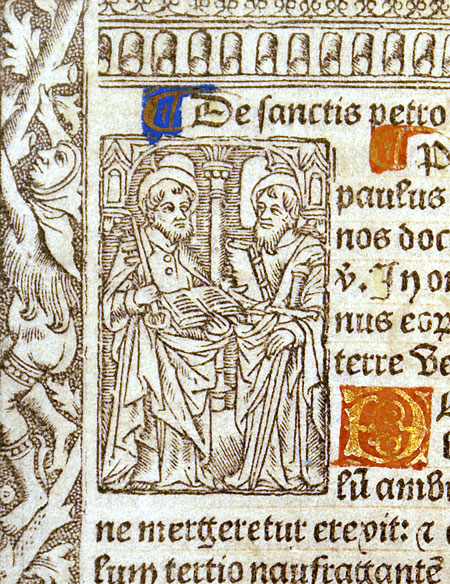 De sanctis petro
P
paulus
nos doc
v. In on
nus eoꝝ
terre Ve
D
ambu
ne mergeretur erexit: ⁊ c
lum tertio naufragantē